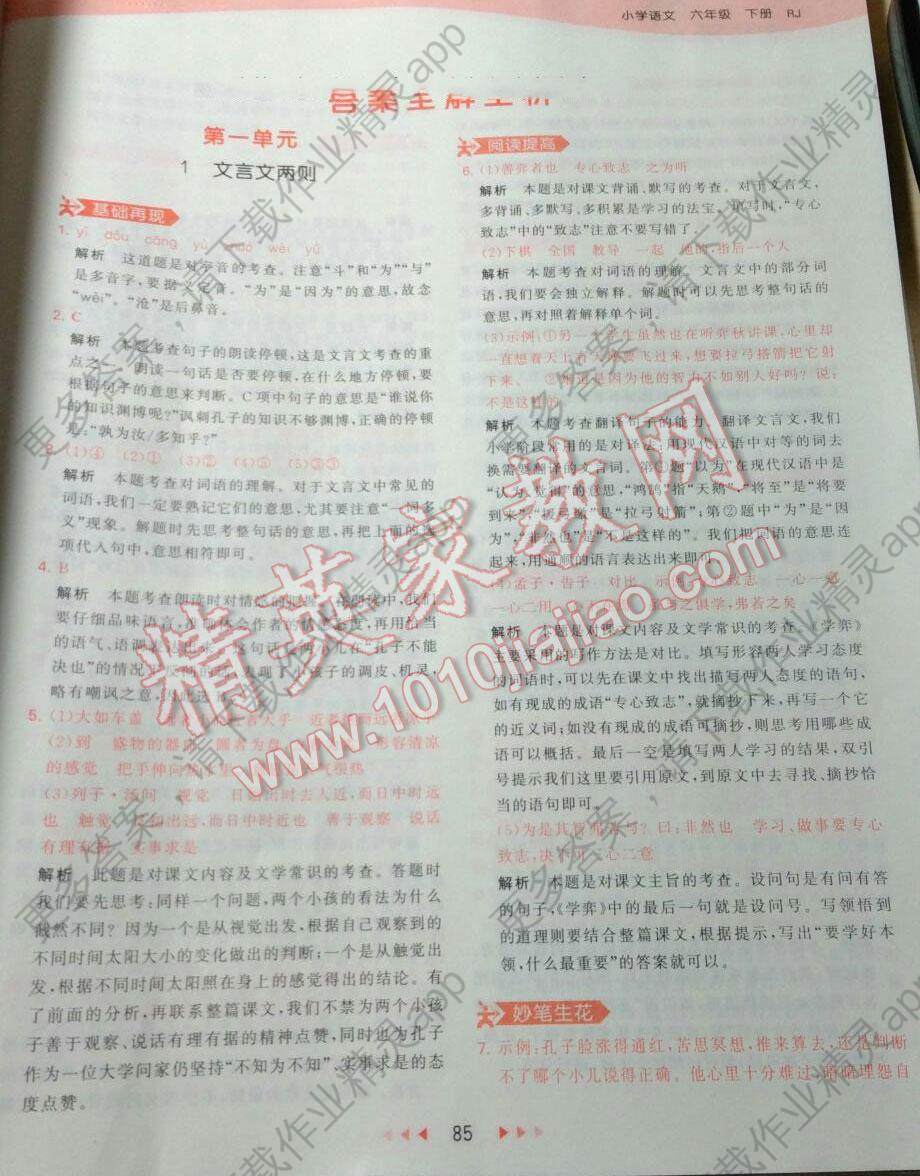 小学语文 六年级 下册 RJ
第一单元
1 文言文两则
基础再现
1. yì dǒu cāng yù wèi yǔ
解析 这道题是对字音的考查。注意“斗”和“为”“与”
是多音字,要据义定音。“为”是“因为”的意思,故念
“wèi”。“沧”是后鼻音。
2. C
解析 本题考查句子的朗读停顿,这是文言文考查的重
点之一。朗读一句话是否要停顿,在什么地方停顿,要
根据句子的意思来判断。C项中句子的意思是“谁说你
的知识渊博呢?”讽刺孔子的知识不够渊博,正确的停顿
是:“孰为汝/多知乎?”
3. (1)①④ (2)③① (3)④① (4)②① (5)③③①
解析 本题考查对词语的理解。对于文言文中常见的
词语,我们一定要熟记它们的意思,尤其要注意“一词多
义”现象。解题时先思考整句话的意思,再把上面的选
项代入句中,意思相符即可。
4. B
解析 本题考查朗读时对情感的把握。在朗读中,我们
要仔细品味语言,准确体会作者的情感态度,再用恰当
的语气、语调
决也”的情况 表现了小孩子的调皮、机灵,
略有嘲讽之意,因此选
5. (1)大如车盖 近者热而远者凉
(2)到 盛物的器皿 圆者为盘 形容清凉
的感觉 把手伸向热水里 天气很热
(3)列子·汤问 视觉 日始出时去人近,而日中时远
也 触觉 日初出远,而日中时近也 善于观察 说话
有理有据 实事求是
解析 此题是对课文内容及文学常识的考查。答题时
我们要先思考:同样一个问题,两个小孩的看法为什么
截然不同? 因为一个是从视觉出发,根据自己观察到的
不同时间太阳大小的变化做出的判断;一个是从触觉出
发,根据不同时间太阳照在身上的感觉得出的结论。有
了前面的分析,再联系整篇课文,我们不禁为两个小孩
子善于观察、说话有理有据的精神点赞,同时也为孔子
作为一位大学问家仍坚持“不知为不知”、实事求是的态
度点赞。
阅读提高
6. (1)善弈者也 专心致志 之为听
解析 本题是对课文背诵、默写的考查。对于文言文,
多背诵、多默写、多积累是学习的法宝。填写时,“专心
致志”中的“致志”注意不要写错了。
(2)下棋 全国 教导 一起 他的,指后一个人
解析 本题考查对词语的理解。文言文中的部分词
语,我们要会独立解释。解题时可以先思考整句话的
意思,再对照着解释单个词。
(3)示例:①另一个学生虽然也在听弈秋讲课,心里却
一直想着天上有大雁要飞过来,想要拉弓搭箭把它射
下来。②难道是因为他的智力不如别人好吗? 说:
不是这样的。
解析 本题考查翻译句子的能力。翻译文言文,我们
小学阶段常用的是对译法:用现代汉语中对等的词去
换需要翻译的文言词。第①题“以为”在现代汉语中是
“认为、觉得”的意思,“鸿鹄”指“天鹅”,“将至”是“将要
到来”,“援弓缴”是“拉弓射箭”;第②题中“为”是“因
为”,“非然也”是“不是这样的”。我们把词语的意思连
起来,用通顺的语言表达出来即可。
(4)孟子·告子 对比 示例:专心致志 一心一意
一心二用 虽与之俱学,弗若之矣
解析 本题是对课文内容及文学常识的考查。《学弈》
主要采用的写作方法是对比。填写形容两人学习态度
的词语时,可以先在课文中找出描写两人态度的语句,
如有现成的成语“专心致志”,就摘抄下来,再写一个它
的近义词;如没有现成的成语可摘抄,则思考用哪些成
语可以概括。最后一空是填写两人学习的结果,双引
号提示我们这里要引用原文,到原文中去寻找、摘抄恰
当的语句即可。
(5)为是其智弗若与? 曰:非然也 学习、做事要专心
致志,决不可三心二意
解析 本题是对课文主旨的考查。设问句是有问有答
的句子,《学弈》中的最后一句就是设问号。写领悟到
的道理则要结合整篇课文,根据提示,写出“要学好本
领,什么最重要”的答案就可以。
妙笔生花
7. 示例:孔子脸涨得通红,苦思冥想,推来算去,还是判断
不了哪个小儿说得正确。他心里十分难过,暗暗埋怨自
85
精英家教网
www.1010jiajiao.com
更多答案,请下载作业精灵app